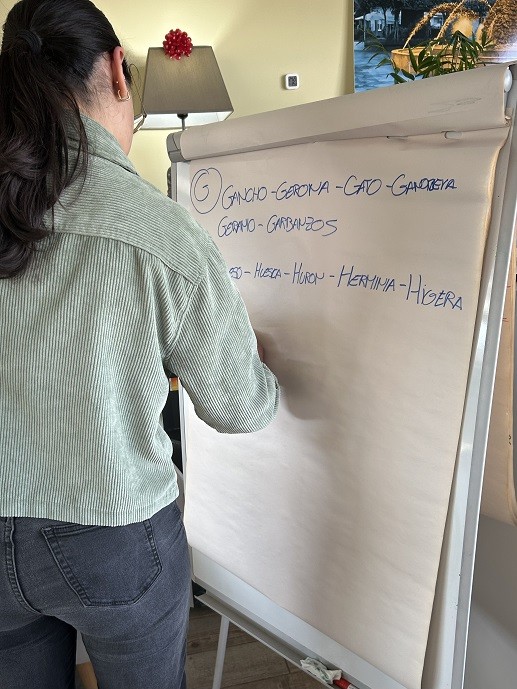 G GANCHO - GERONA - GATO - GANDREYA
GERANIO - GARBANZOS
- HUESCA - HURON - HERMINIA - HIGERA